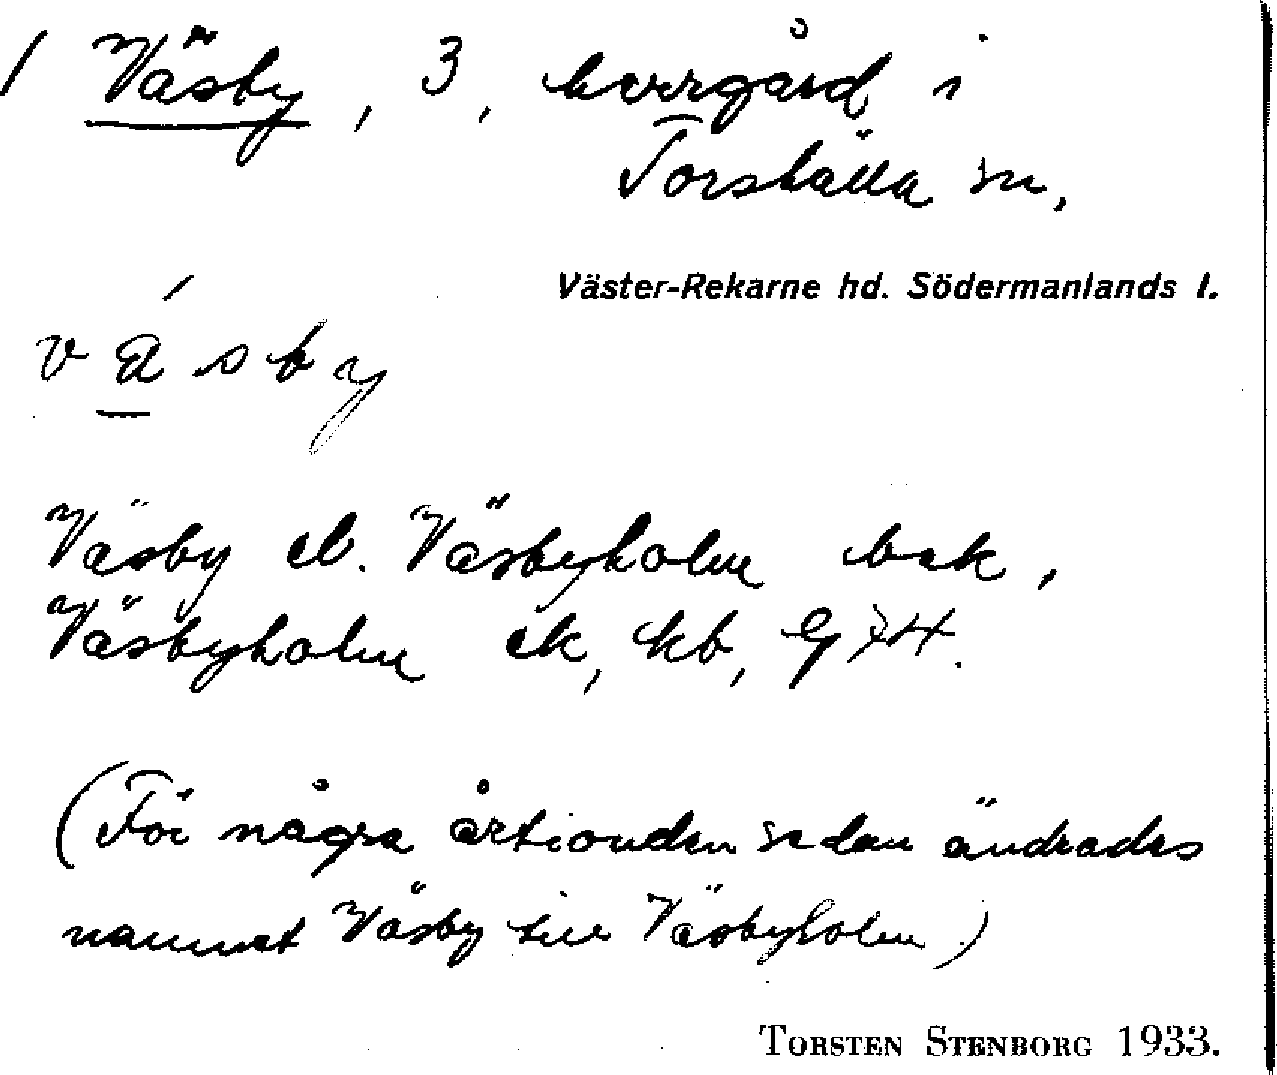 / Väsby, 3, herrgård i
Torshälla sn,
Väster-Rekarne hd. Södermanlands l.
väsby
Väsby el. Väsbyholm bek,
Väsbyholm ek, kb, G74.
(För några årtionden sedan ändrades
namnet Väsby till Väsbyholm)
TORSTEN STENBORG 1933.